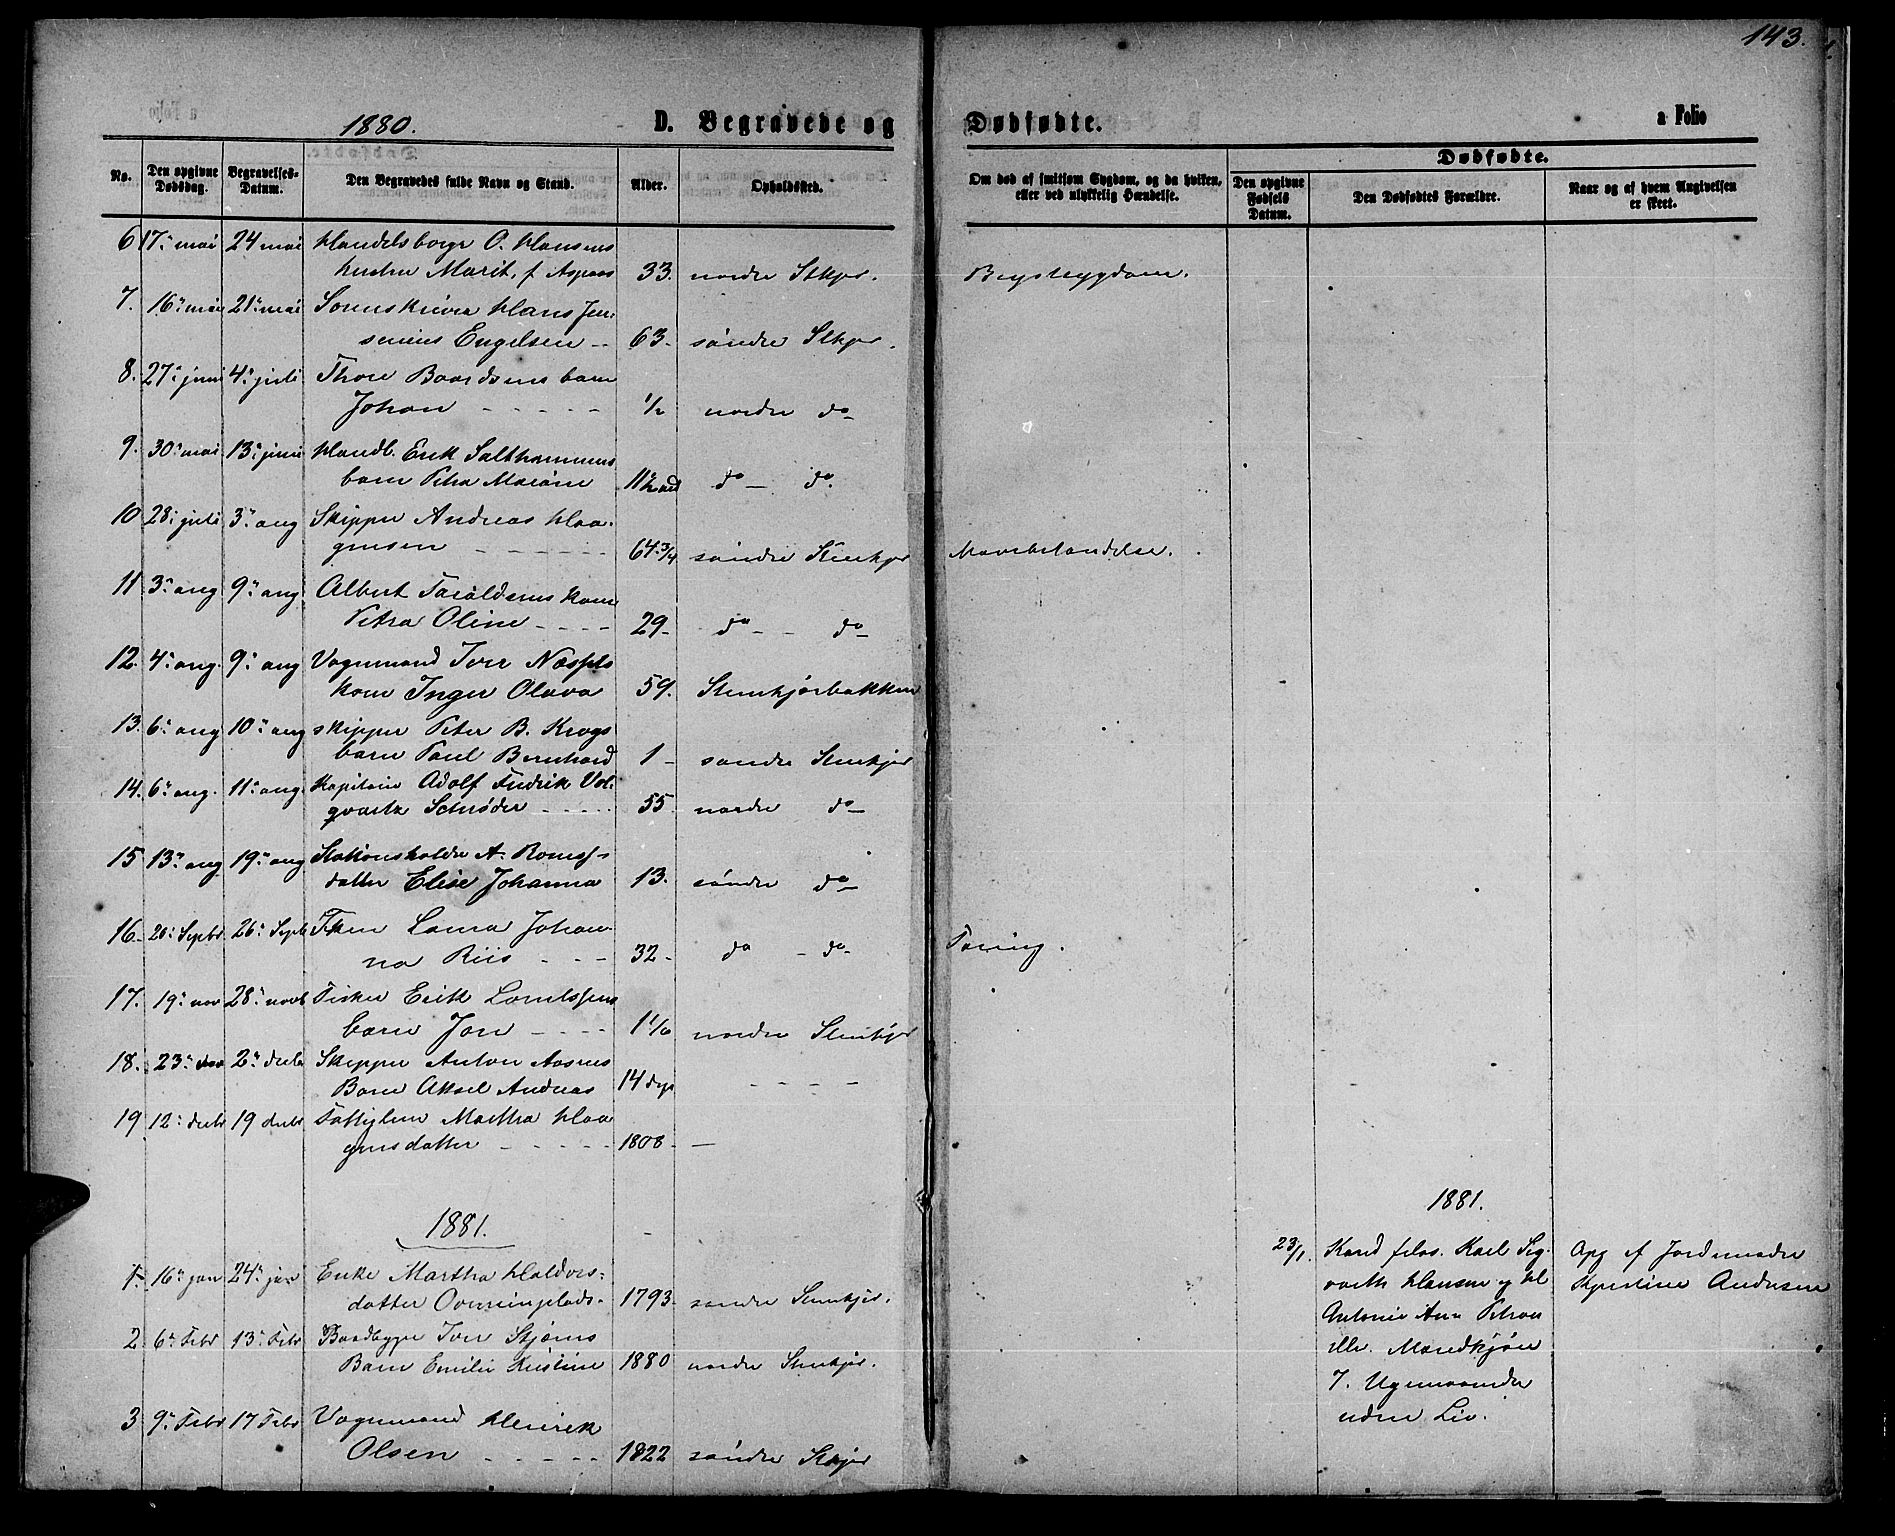 143.
1880.
D. Begravede og
Dødfødte.
a Folio
No.
Den opgivne Dødsdag.
Begravelses-Datum.
Den Begravedes fulde Navn og Stand.
Alder.
Opholdssted.
Om død af smitsom Sygdom, og da hvilken,
eller ved ulykkelig Hændelse.
Dødfødte.
Den opgivne Fødsels Datum.
Den Dødfødtes Forældre.
Naar og af hvem Angivelsen
er skeet.
6 17: mai 24 mai Handelsborgr O. Hansens
hustru Marit, f Aspaas 33. nordre Stkjer. Brystsygdom.
7. 16: mai 21: mai Sorenskriver Hans Jen-
senius Engelsen 63. søndre Stkjer.
8. 27: juni 4: juli Thore Baardsens barn
Johan 1/2 nordre do
9. 30: mai 13: juni Handl. Erik Salthammers
barn Petra Marine do do.
10 28: juli 3: aug Skipper Andreas Haa-
gensen 64 3/4 søndre Stenkjer
11 3: aug 9: aug Albert Taraldsens kone
Petra Oline 29 do do
12. 4: aug. 9: aug Vognmand Iver
kone Inger Olava 59. Stenkjerbakken
13. 6: aug 10: aug skipper Peter B. Krogs
barn Paul Bernhard 1 søndre Stenkjer
14. 6: aug. 11: aug. Kapitain Adolf Fredrik Vol-
qvartz Schrøder 55. nordre do
15 13: aug 19: aug Stationsholder A.
datter Elise Johanna 13. søndre do
16. 20: Septbr 26: Septb Lorna Johan-
na Riis 32 do do Tæring.
17. 19: nov 28: novb Fisker Erik
barn Jon nordre Stenkjer
18. 23: 2: decbr Skipper Anton
Barn Aksel Andreas 14 dage
19 12: decbr 19 decbr Fattiglem Martha Haa
gensdatter 1808
1881.
1. 16: jan 24: jan Enke Martha Haldors-
datter 1793. søndre Stenkjer.
2 6: Febr 13: Febr Baadbygger Iver
Barn Emilie Kristine 1880 nordre Stenkjer.
3 9: Febr 17 Febr Vognmand Henrik
Olsen 1822 søndre Stkjer
1881.
23/1 Kand filos. Karl Sig-
varth Hansen og
Antonie Ann Petron
elle.
7. Ugemaaneder
uden Liv.
Opg af Jordemoder
Kjerstine Andersen